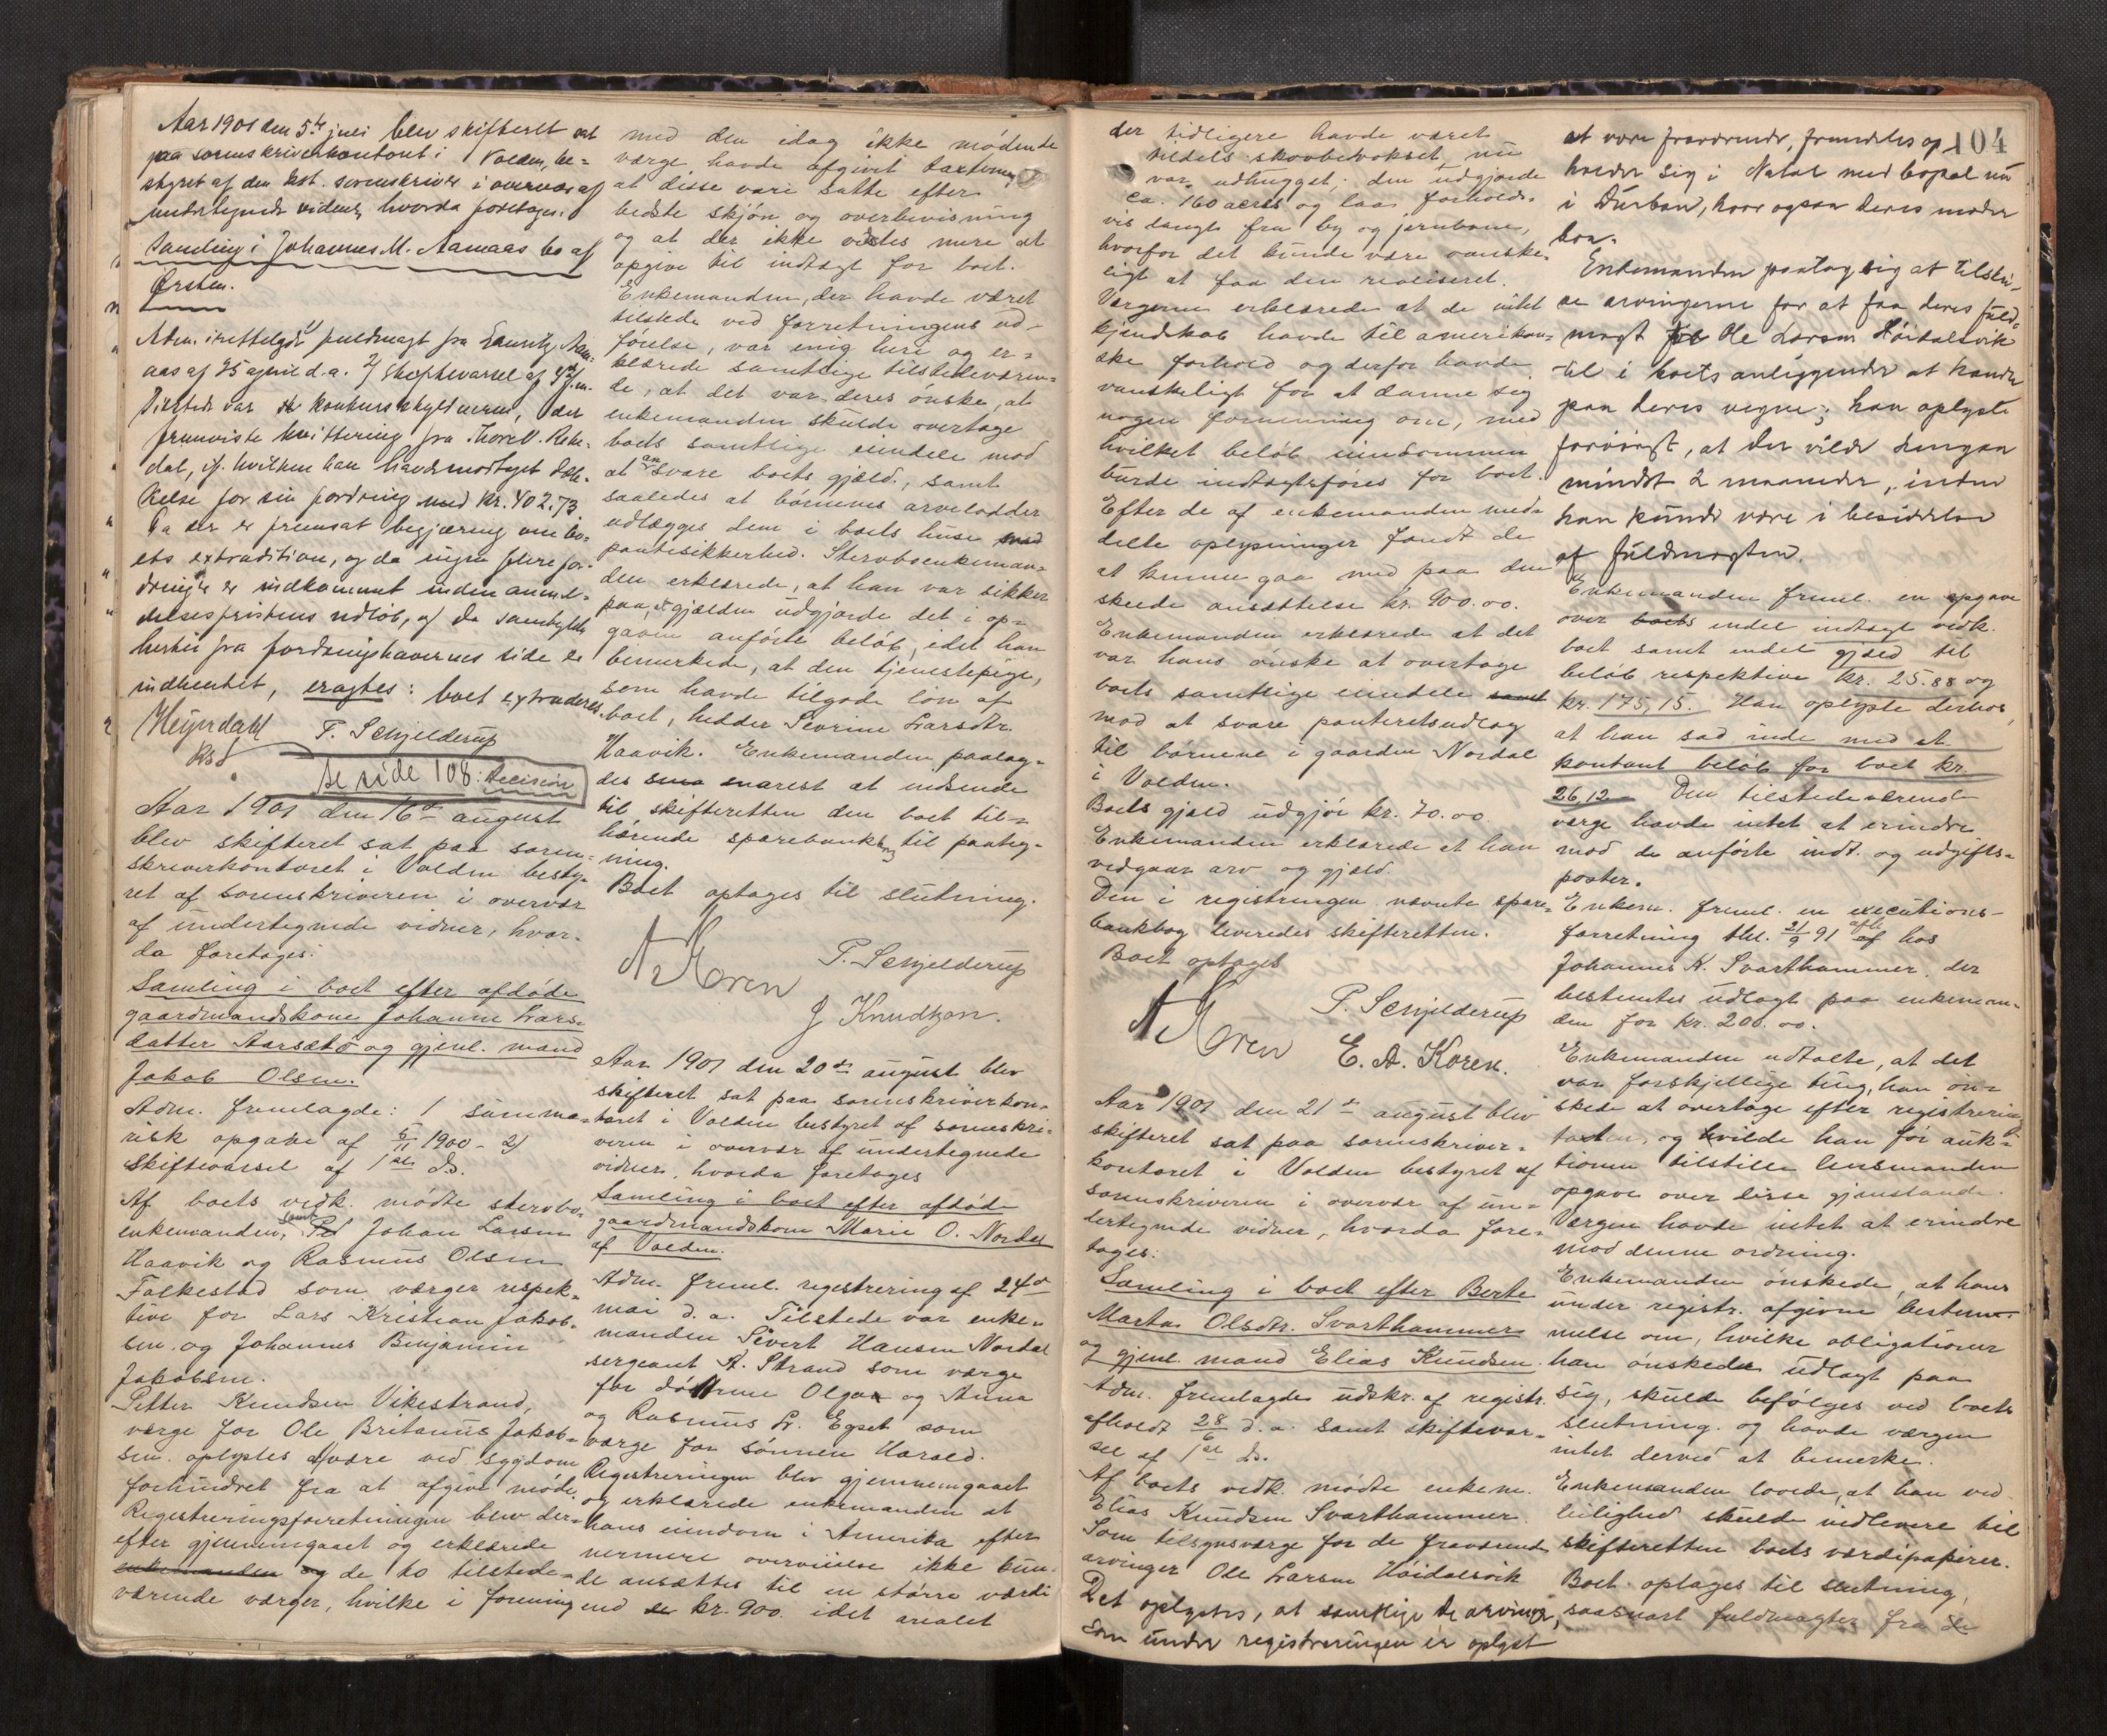 Aar 1901 den 5te juli blev skifteret sat
paa sorenskriverkontoret i Volden, be-
styret af den kst. sorenskriver i overvær af
undertegnede vidner, hvorda foretoges:
Samling i Johannes M. Aamaas bo af
Ørsten.
Adm. irettelagde 1) fuldmagt fra Lauritz Aam-
aas af 25 april d.a. 2) Skiftevarsel af
Tilstede var konkursskyldneren, der
fremviste kvittering fra Thore V. Rebe-
dal, if. hvilken han havde modtaget dæk-
kelse for sin fordring med kr. 402.73.
Da der er fremsat begjæring om bo-
ets extradition, og da ingen flere for-
dringer er indkommet inden anmel-
delsesfristens udløb, og da samtykke
hertil fra fordringshavernes side er
indhentet, eragtes: boet extraderes.
Heyerdahl T. Schjelderup
kst.
Se side 108: Decision
Aar 1901 den 16de august
blev skifteret sat paa soren-
skriverkontoret i Volden besty-
ret af sorenskriveren i overvær
af undertegnede vidner, hvor-
da foretoges:
Samling i boet efter afdøde
gaardmandskone Johanne Lars-
datter Aarsæthø og gjenl. mand
Jakob Olsen.
Adm. fremlagde: 1 summa-
risk opgave af 5/11 1900 - 2)
Skiftevarsel af 1ste ds.
Af boets vedk. mødte stervbo-
enkemanden, samt Johan Larsen
Haavik og Rasmus Olsen
Folkestad som værger respek-
tive for Lars Kristian Jakob-
sen og Johannes Benjamin
Jakobsen.
Petter Knudsen Vikestrand,
værge for Ole Britanus Jakob-
sen oplystes at være ved sygdom
forhindret fra at afgive møde.
Registreringsforretningen blev der-
efter gjennemgaaet og erklærede
enkemanden og de to tilstede-
værende værger, hvilke i forening
med den idag ikke mødende
værge havde afgivet taxterne,
at disse vare satte efter
bedste skjøn og overbevisning
og at der ikke vidstes mere at
opgive til indtægt for boet.
Enkemanden, der havde været
tilstede ved forretningens ud-
førelse, var enig heri og er-
klærede samtlige tilstedeværen-
de, at det var deres ønske, at
enkemanden skulde overtage
boets samtlige eiendele mod
at an svare boets gjæld, samt
saaledes at børnenes arvelodder
udlægges dem i boets huse med
pantesikkerhed. Stervboenkeman-
den erklærede, at han var sikker
paa, at gjælden udgjorde det i op-
gaven anførte beløb, idet han
bemerkede, at den tjenestepige,
som havde tilgode løn af
boet, hedder Severine Larsdtr.
Haavik. Enkemanden paalag-
des sma snarest at indsende
til skifteretten den boet til-
hørende sparebankbog til paateg-
ning.
Boet optages til slutning.
A Koren T. Schjelderup
J Knudtzon.
Aar 1901 den 20de august blev
skifteret sat paa sorenskriverkon-
toret i Volden bestyret af sorenskri-
veren i overvær af undertegnede
vidner, hvorda foretoges
Samling i boet efter afdøde
gaardmandskone Marie O. Nordal
af Volden.
Adm. freml. registrering af 24de
mai d.a. Tilstede var enke-
manden Sivert Hansen Nordal
sergeant A. Strand som værge
for døttrene Olga og Anna
og Rasmus Lr. Egset som
værge for sønnen Harald.
Registreringen blev gjennemgaaet
og erklærede enkemanden at
hans eiendom i Amerika efter
nermere overveielse ikke kun-
de ansættes til en større værdi
end kr. 900. idet arealet
der tidligere havde været
tildels skovbevokset, nu
var udhugget; den udgjorde
ca. 160 acres og laa forholds-
vis langt fra by og jernbane,
hvorfor det kunde være vanske-
ligt at faa den realiseret.
Værgerne erklærede at de intet
kjendskab havde til amerikan-
ske forhold og derfor havde
vanskeligt for at danne sig
nogen formening om, med
hvilket beløb eiendommen
burde indtægtsføres for boet.
Efter de af enkemanden med-
delte oplysninger fandt de
at kunne gaa med paa den
skede ansættelse kr. 900.00.
Enkemanden erklærede at det
var hans ønske at overtage
boets samtlige eiendele samt
mod at svare panteretsudlæg
til børnene i gaarden Nordal
i Volden.
Boets gjæld udgjør kr. 70.00.
Enkemanden erklærede at han
vedgaar arv og gjæld.
Den i registreringen nævnte spare-
bankbog leveredes skifteretten.
Boet optages
A Koren T. Schjelderup
E. A. Koren.
Aar 1901 den 21de august blev
skifteret sat paa sorenskriver-
kontoret i Volden bestyret af
sorenskriveren i overvær af un-
dertegnede vidner, hvorda fore-
toges:
Samling i boet efter Berte
Martas Olsdtr. Svarthammer
og gjenl. mand Elias Knudsen.
Adm. fremlagde udskr. af registr.
afholdt 28/6 d.a. samt skiftevar-
sel af 1ste ds.
Af boets vedk. mødte enkem.
Elias Knudsen Svarthammer.
Som tilsynsværge for de fraværende
arvinger Ole Larsen Høidalsvik
Det oplystes, at samtlige de arvinger,
som under registreringen er oplyst
104
at være fraværende, fremdeles op-
holder sig i Natal med bopæl nu
i Durban, hvor ogsaa deres moder
bor.
Enkemanden paatog sig at tilskri-
ve arvingerne for at faa deres fuld-
magt for Ole Larsen Høidalsvik
til i boets anliggender at handle
paa deres vegne; han oplyste
forøvrigt, at der vilde hengaa
mindst 2 maaneder, inden
han kunde være i besiddelse
af fuldmagten.
Enkemanden freml. en opgave
over boets endel indtægt vedk.
boet samt endel gjæld til
beløb respektive kr. 25.88 og
kr. 175,15. Han oplyste derhos,
at han sad inde med et
kontant beløb for boet kr.
26,12. Den tilstedeværende
værge havde intet at erindre
mod de anførte indt. og udgifts-
poster.
Enkem. freml. en executions-
forretning thl. 21/9 91 afh hos
Johannes K. Svarthammer, der
bestemtes udlagt paa enkeman-
den for kr. 200.00.
Enkemanden udtalte, at det
var forskjellige ting, han øn-
skede at overtage efter registrerings
taxten, og vilde han før auk-
tionen tilstille lensmanden
opgave over disse gjenstande.
Værgen havde intet at erindre
mod denne ordning.
Enkemanden ønskede, at hans
under registr. afgivne bestem-
melse om, hvilke obligationer
han ønskede udlagt paa
sig, skulde befølges ved boets
slutning, og havde værgen
intet derved at bemerke.
Enkemanden lovede, at han ved
leilighed skulde indlevere til
skifteretten boets værdipapirer.
Boet optages til slutning,
saasnart fuldmagter fra de